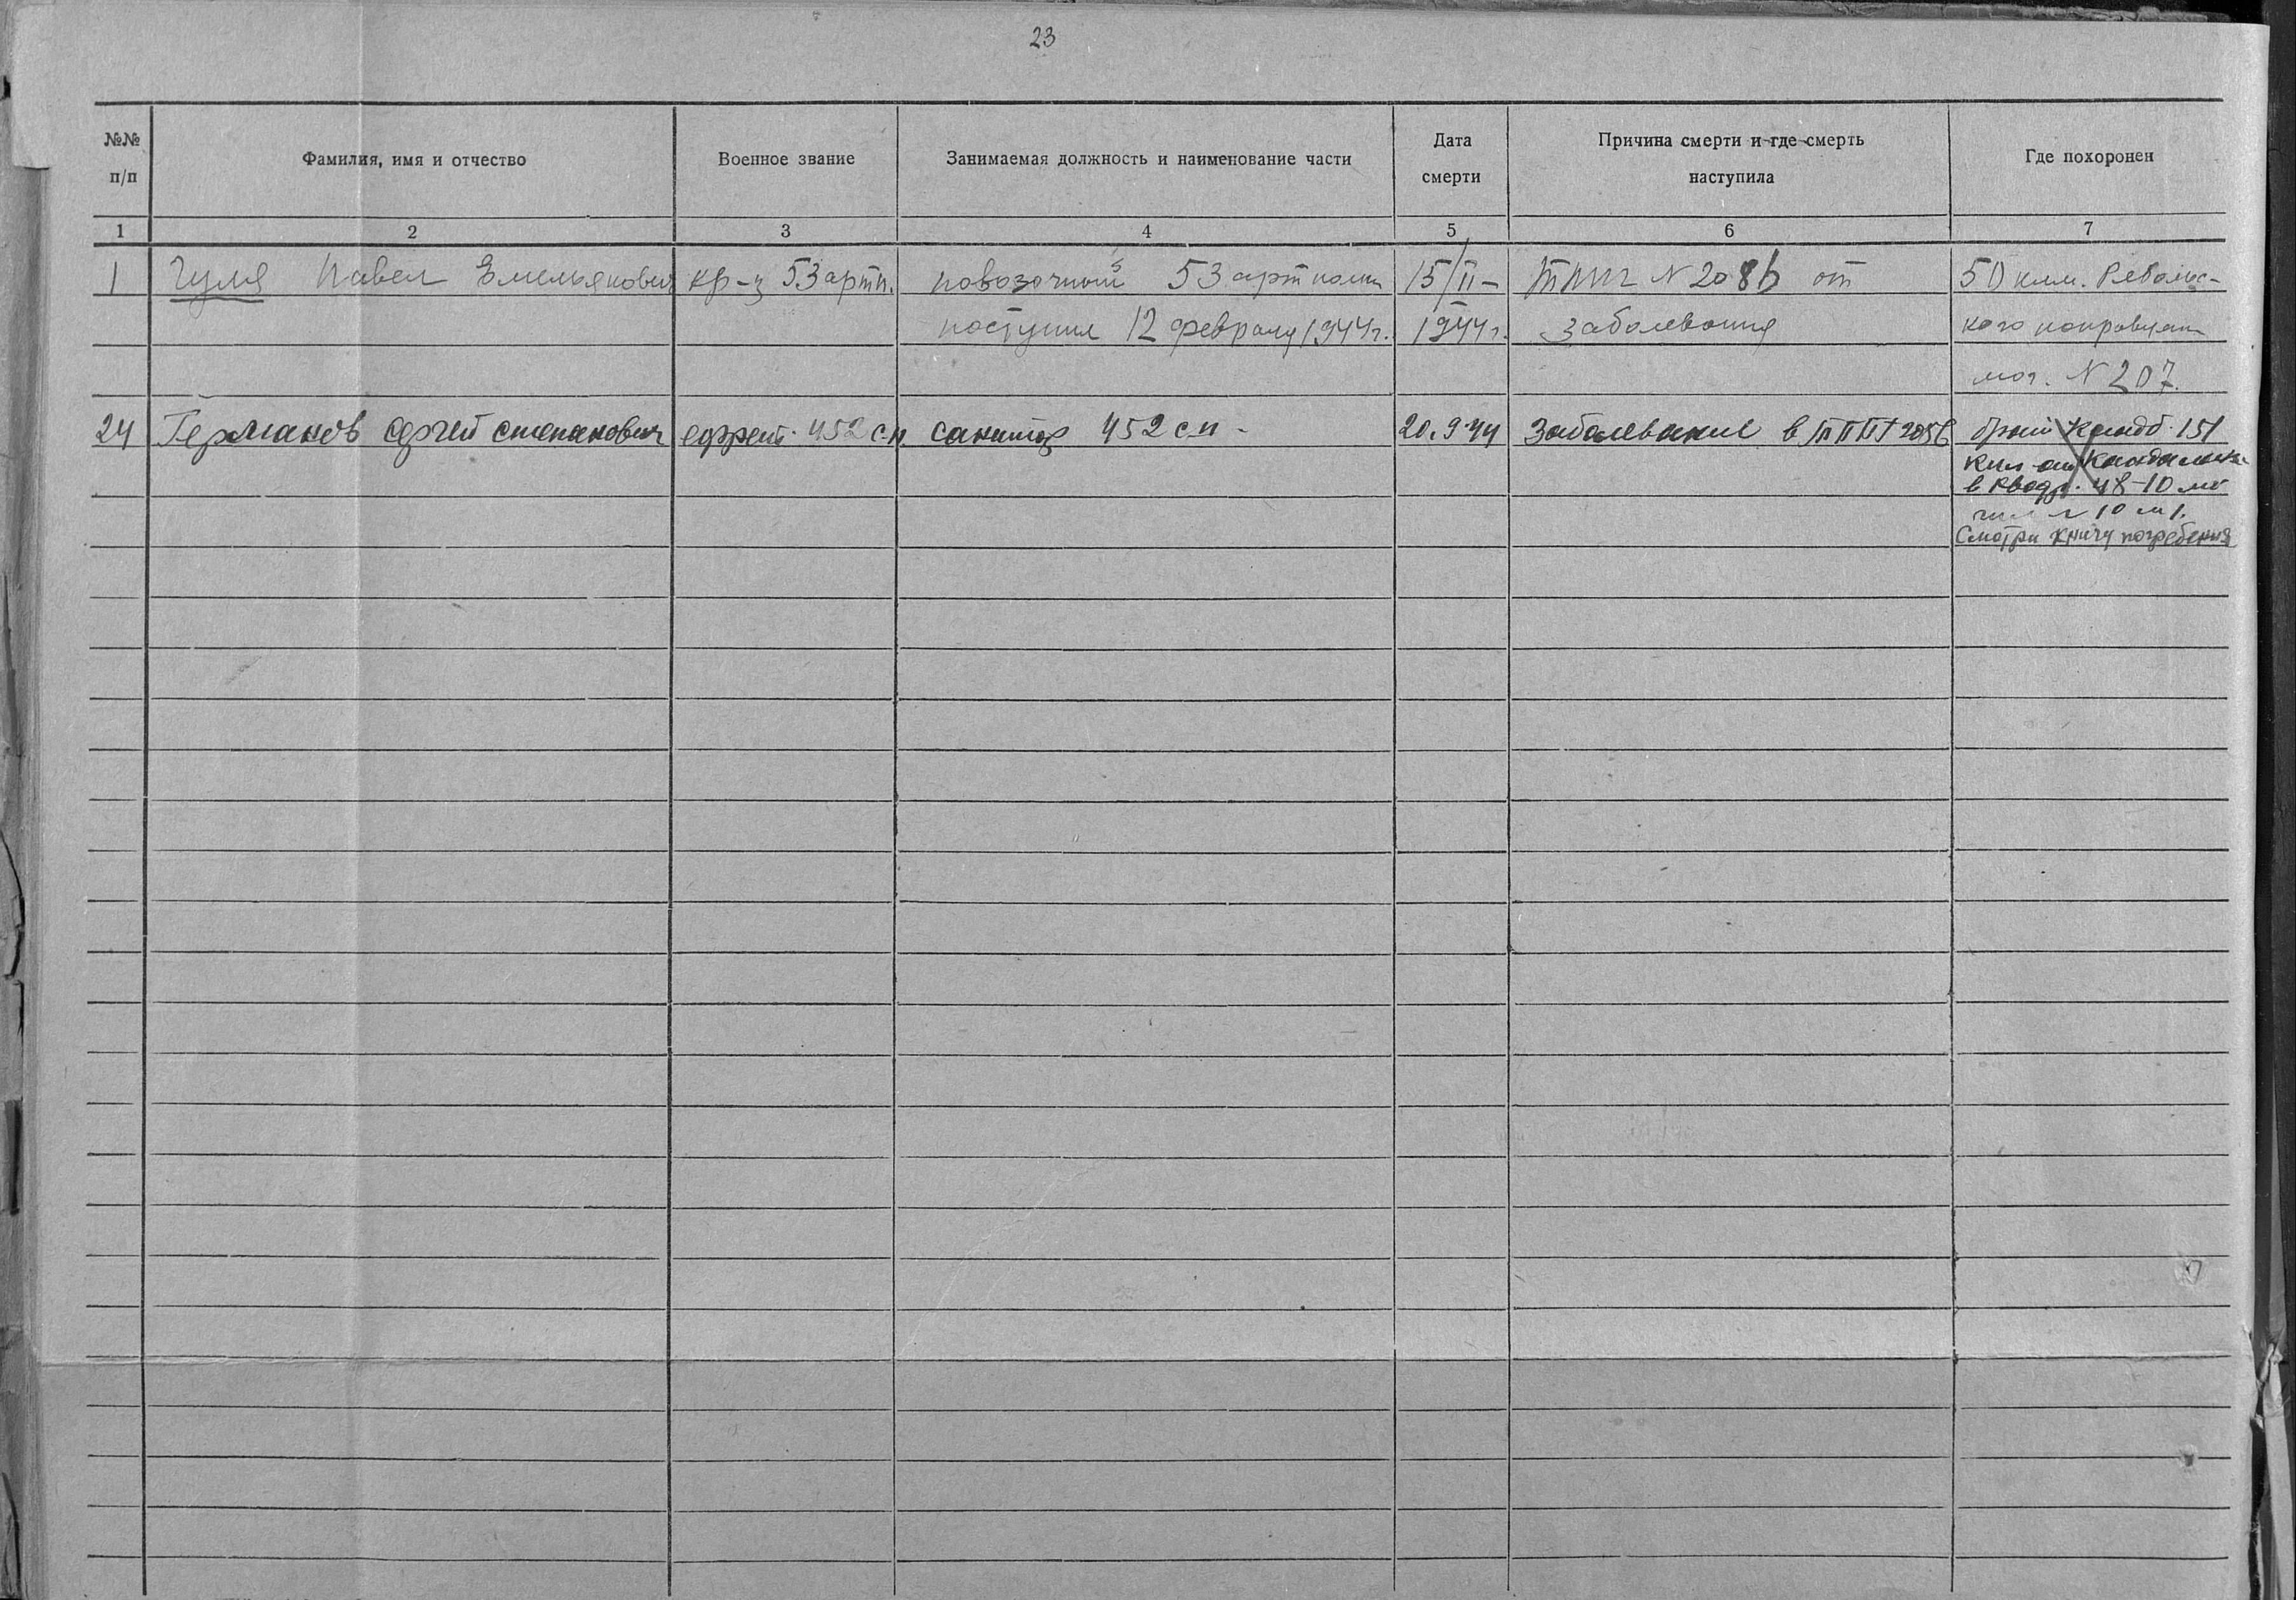 23
№№ п/п
Фамилия, имя и отчество
Военное звание
Занимаемая должность и наименование части
Дата смерти
Причина смерти и где смерть наступила
Где похоронен
1 2 3 4 5 6 7
1 Гуля Павел Емельянович кр-ц 53 артп. повозочный 53 артполк 15/II- ТППГ N 2086 от 50 клм. Ребольс-
поступил 12 февраля 1944 г. 1944 г. заболевания кого направлен
мог. N 207.
24 Германов Сергей Степанович ефрейт. 452 сп. санитар 452 сп - 20.9.44 Заболевание в ТППГ 2086 151
клм от
в квадр. 48-10
10 м).
Смотри книгу погребения